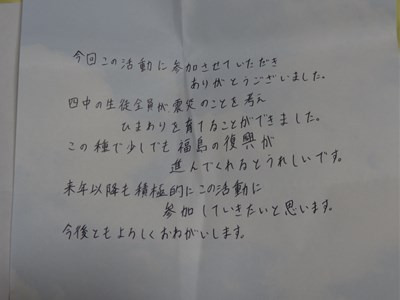 今回この活動に参加させていただき
ありがとうございました。
四中の生徒全員が震災のことを考え
ひまわりを育てることができました。
この種で少しでも福島の復興が
進んでくれるとうれしいです。
来年以降も積極的にこの活動に
参加していきたいと思います。
今後ともよろしくおねがいします。